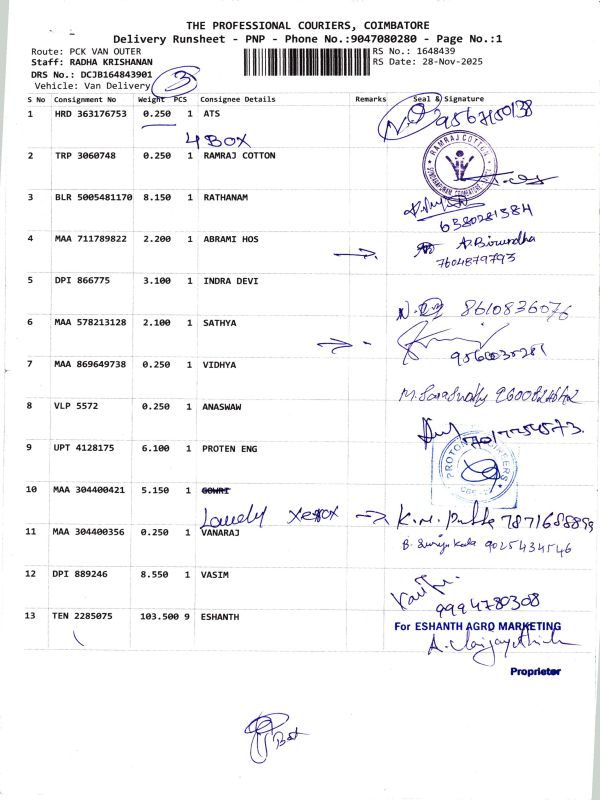 THE PROFESSIONAL COURIERS, COIMBATORE
Delivery Runsheet - PNP - Phone No.:9047080280 - Page No.:1
Route: PCK VAN OUTER
RS No.: 1648439
Staff: RADHA KRISHANAN
RS Date: 28-Nov-2025
DRS No.: DCJB164843901
3
Vehicle: Van Delivery
S No Consignment No Weight PCS Consignee Details Remarks Seal & Signature
1 HRD 363176753 0.250 1 ATS
4 BOX
2 TRP 3060748 0.250 1 RAMRAJ COTTON
RAMRAJ COTTON
3 BLR 5005481170 8.150 1 RATHANAM
6380281584
4 MAA 711789822 2.200 1 ABRAMI HOS
7604879793
5 DPI 866775 3.100 1 INDRA DEVI
8610836076
6 MAA 578213128 2.100 1 SATHYA
7 MAA 869649738 0.250 1 VIDHYA
8 VLP 5572 0.250 1 ANASWAW
9 UPT 4128175 6.100 1 PROTEN ENG
10 MAA 304400421 5.150 1 GOWRI
Lovely xerox → 7871688899
11 MAA 304400356 0.250 1 VANARAJ
9025434546
12 DPI 889246 8.550 1 VASIM
9994780308
13 TEN 2285075 103.500 9 ESHANTH
For ESHANTH AGRO MARKETING
Proprietor